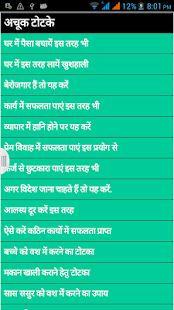 8:01 PM
अचूक टोटके
घर में पैसा बचायें इस तरह भी
घर में इस तरह लायें खुशहाली
बेरोजगार हैं तो यह करें
कार्य में सफलता पाएं इस तरह भी
व्यापार में हानि होने पर यह करें
प्रेम विवाह में सफलता पाएं इस प्रयोग से
कर्ज से छुटकारा पाएं इस तरह भी
अगर विदेश जाना चाहते हैं तो यह करें.
आलस्य दूर करें इस तरह
ऐसे करें कठिन कार्यों में सफलता प्राप्त
बच्चे को वश में करने का टोटका
मकान खाली कराने हेतु टोटका
सास ससुर को वश में करने का उपाय